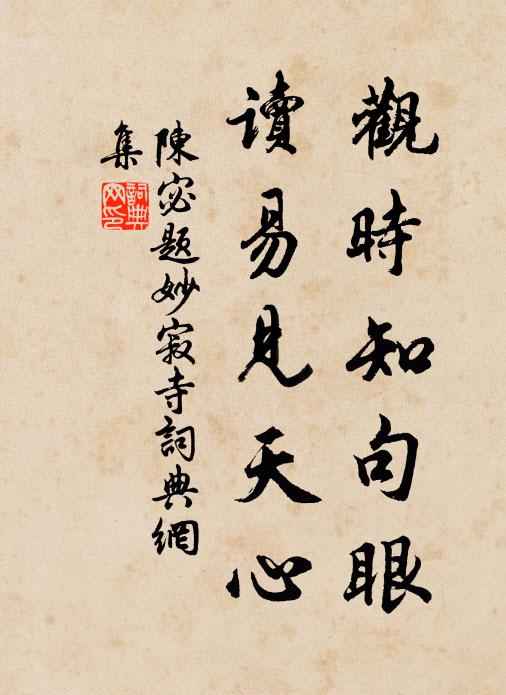 觀時知句眼
讀易見天心
陳宓題妙寂寺詞典網
集
詞典
網印